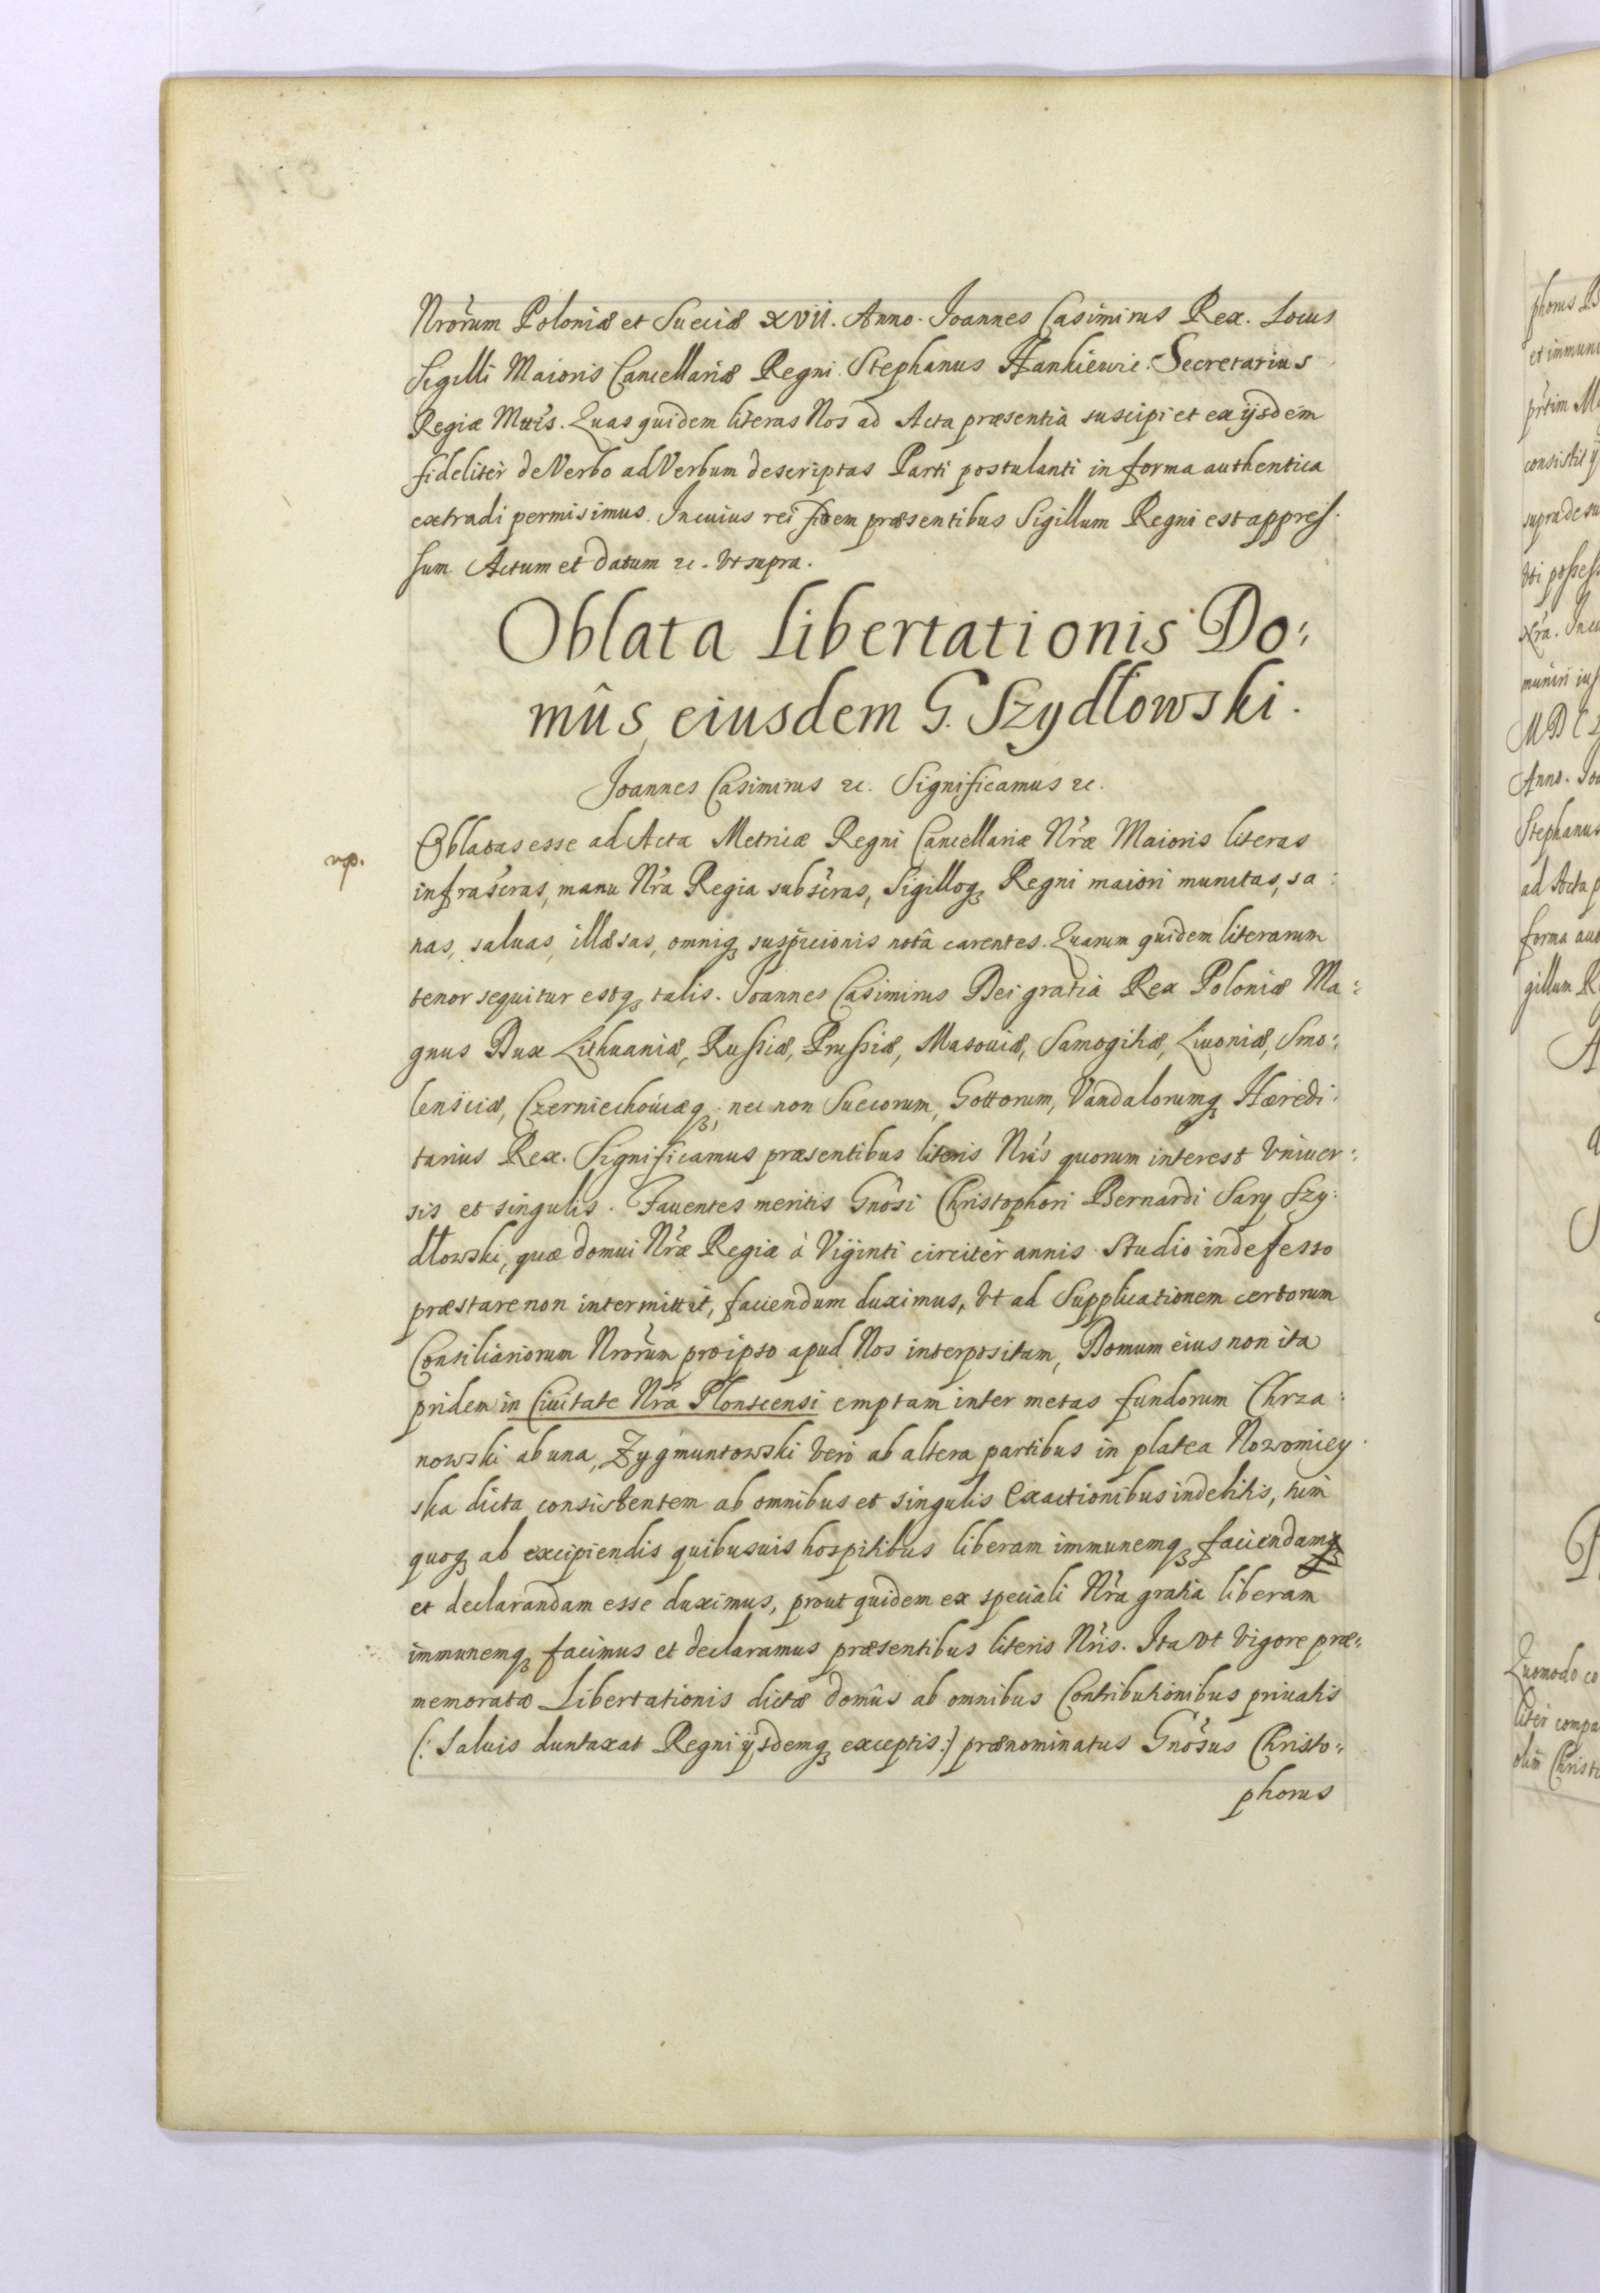 Nrorum Poloniæ et Sueciæ XVII. Anno. Joannes Casimirus Rex. Locus
Sigilli Maioris Cancellariæ Regni. Stephanus Hankiewic. Secretarius
Regiæ Mtis. Quas quidem literas Nos ad Acta præsentia suscipi et ex ijsdem
fideliter de Verbo ad Verbum descriptas Parti postulanti in forma authentica
extradi permisimus. In cuius rei fidem præsentibus Sigillum Regni est appres.
sum Actum et datum &c. Vt supra.
Oblata Libertationis Do:
mûs eiusdem G. Szydłowski.
Joannes Casimirus &c. Significamus &c.
Oblatas esse ad Acta Metricæ Regni Cancellariæ Nræ Maioris literas
infrascras, manu Nra Regia subscras, Sigilloq Regni maiori munitas, sa:
nas, saluas, illæsas, omniq suspicionis notâ carentes. Quarum quidem literarum
tenor sequitur estq talis. Joannes Casimirus Dei gratia Rex Poloniæ Ma:
gnus Dux Lithuaniæ, Russiæ, Prussiæ, Masouiæ, Samogitiæ, Liuoniæ, Smo:
lensciæ, Czerniechouiæq, nec non Suecorum, Gottorum, Vandalorumq Hæredi:
tarius Rex. Significamus præsentibus literis Nris quorum interest Vniuer:
sis et singulis. Fauentes meritis Gnosi Christophori Bernardi Sary Szy:
dłowski, quæ domui Nræ Regiæ à Viginti circiter annis studio indefesso
præstare non intermittit, faciendum duximus, Vt ad Supplicationem certorum
Consiliariorum Nrorum pro ipso apud Nos interpositam, Domum eius non ita
pridem in Ciuitate Nra Płonscensi emptam inter metas fundorum Chrza:
nowski ab una, Zygmuntowski Vero ab altera partibus in platea Nowomiey
ska dicta consistentem ab omnibus et singulis Exactionibus indebitis, tum
quoq ab excipiendis quibusuis hospitibus liberam immunemq faciendam
et declarandam esse duximus, prout quidem ex speciali Nra gratia liberam
immunemq facimus et declaramus præsentibus literis Nris. Ita Vt Vigore præ:
memoratæ Libertationis dictæ domûs ab omnibus Contributionibus priuatis
(: Saluis duntaxat Regni ijsdemq exceptis :) prænominatus Gnosus Christo:
phorus